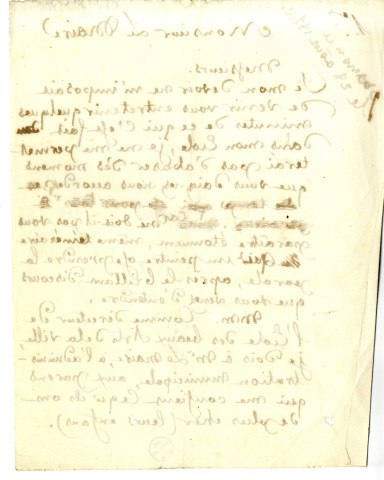 Monsieur le Maire
Messieurs.
Si mon devoir ne m'imposait
de venir vous entretenir quelques
minutes de ce qui s'est fait
dans mon école, je ne me permet
terai pas d'abuser des momens
que vous daignez nous accorder
car ne doit-il pas vous
paraître étonnant, même téméraire
un peintre de prendre la
parole après le brillant discours
que vous venez d'entendre.
Mm. Comme directeur de
l'école des beaux Arts de la ville,
je dois à Mr Le Maire, à l'adminis-
tration municipale, aux parens
qui me confient ce qu'ils ont
de plus cher (leurs enfans).